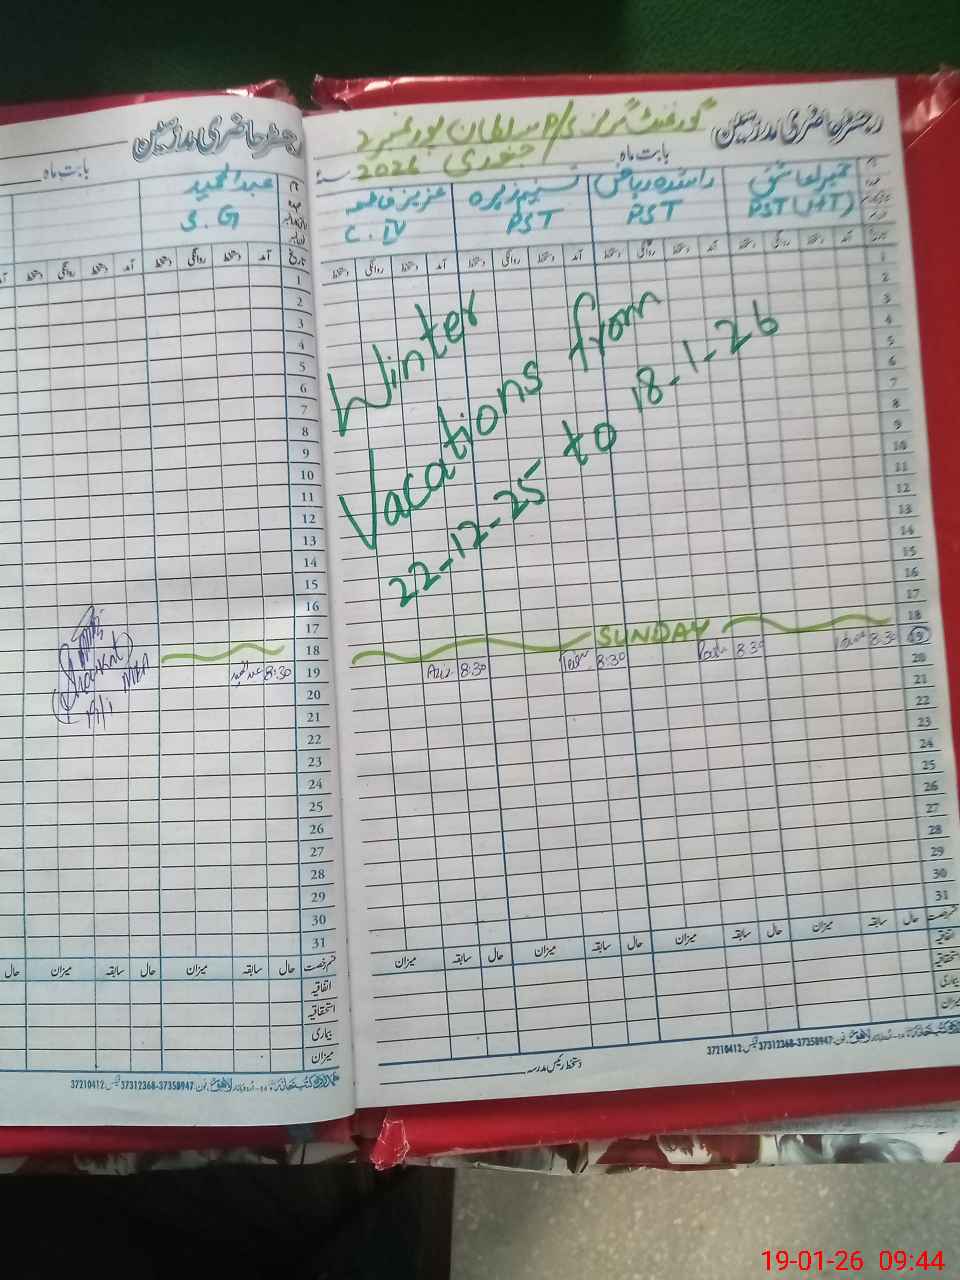 رجسٹر حاضری مدرسین
گورنمنٹ گرلز P/S سلطان پور نمبر 2
بابت ماہ جنوری 2026
PST (HT)
راشدہ ریاض
PST
PST
عزیز فاطمہ
C. IV
آمد دستخط روانگی دستخط آمد دستخط روانگی دستخط آمد دستخط روانگی دستخط آمد دستخط روانگی دستخط
Winter
Vacations from
22-12-25 to 18-1-26
1
2
3
4
5
6
7
8
9
10
11
12
13
14
15
16
17
18
SUNDAY
19
8:30 8:30 8:30 Aziz 8:30
20
21
22
23
24
25
26
27
28
29
30
31
قسم رخصت حال سابقہ میزان حال سابقہ میزان حال سابقہ میزان حال سابقہ میزان
اتفاقیہ
استحقاقیہ
بیماری
میزان
37210412 فیکس 37312368-37358947 فون
دستخط رئیس مدرسہ
رجسٹر حاضری مدرسین
بابت ماہ
عبدالحمید
S. G
تاریخ آمد دستخط روانگی دستخط آمد دستخط روانگی دستخط
1
2
3
4
5
6
7
8
9
10
11
12
13
14
15
16
17
18
19 8:30
20
21
22
23
24
25
26
27
28
29
30
31
(Shaukat)
19/1
قسم رخصت حال سابقہ میزان حال سابقہ میزان حال
اتفاقیہ
استحقاقیہ
بیماری
میزان
37210412 فیکس 37312368-37358947 فون
19-01-26 09:44